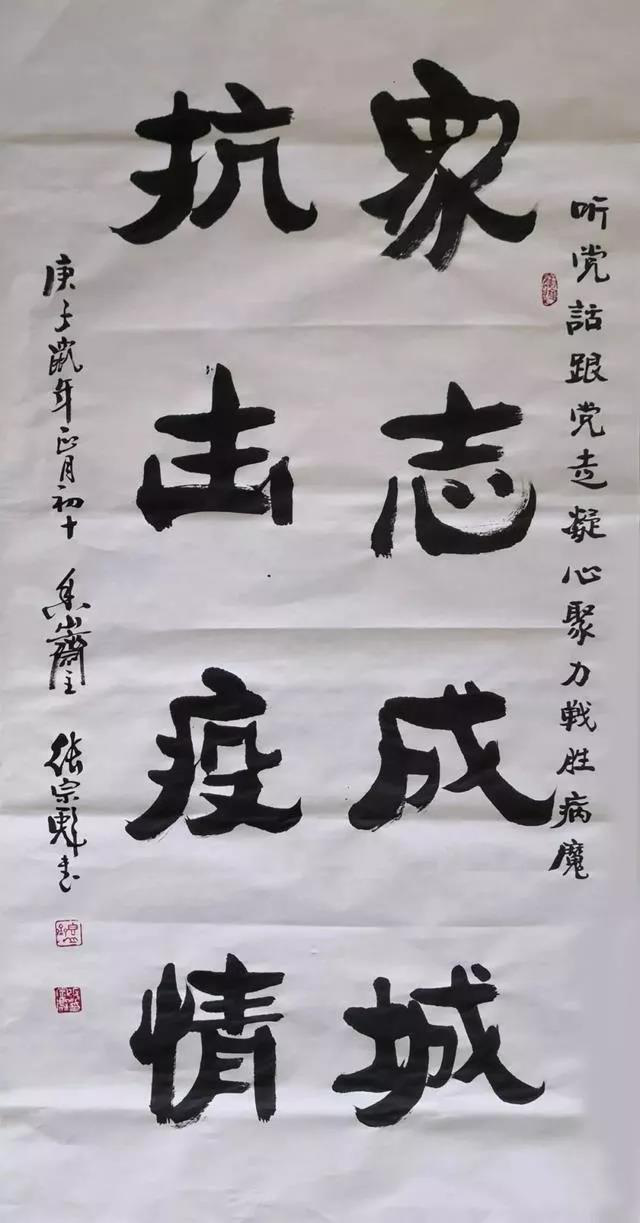 听党話跟党走凝心聚力戰胜病魔
眾志成城
抗击疫情
庚子鼠年正月初十
张宗彪书